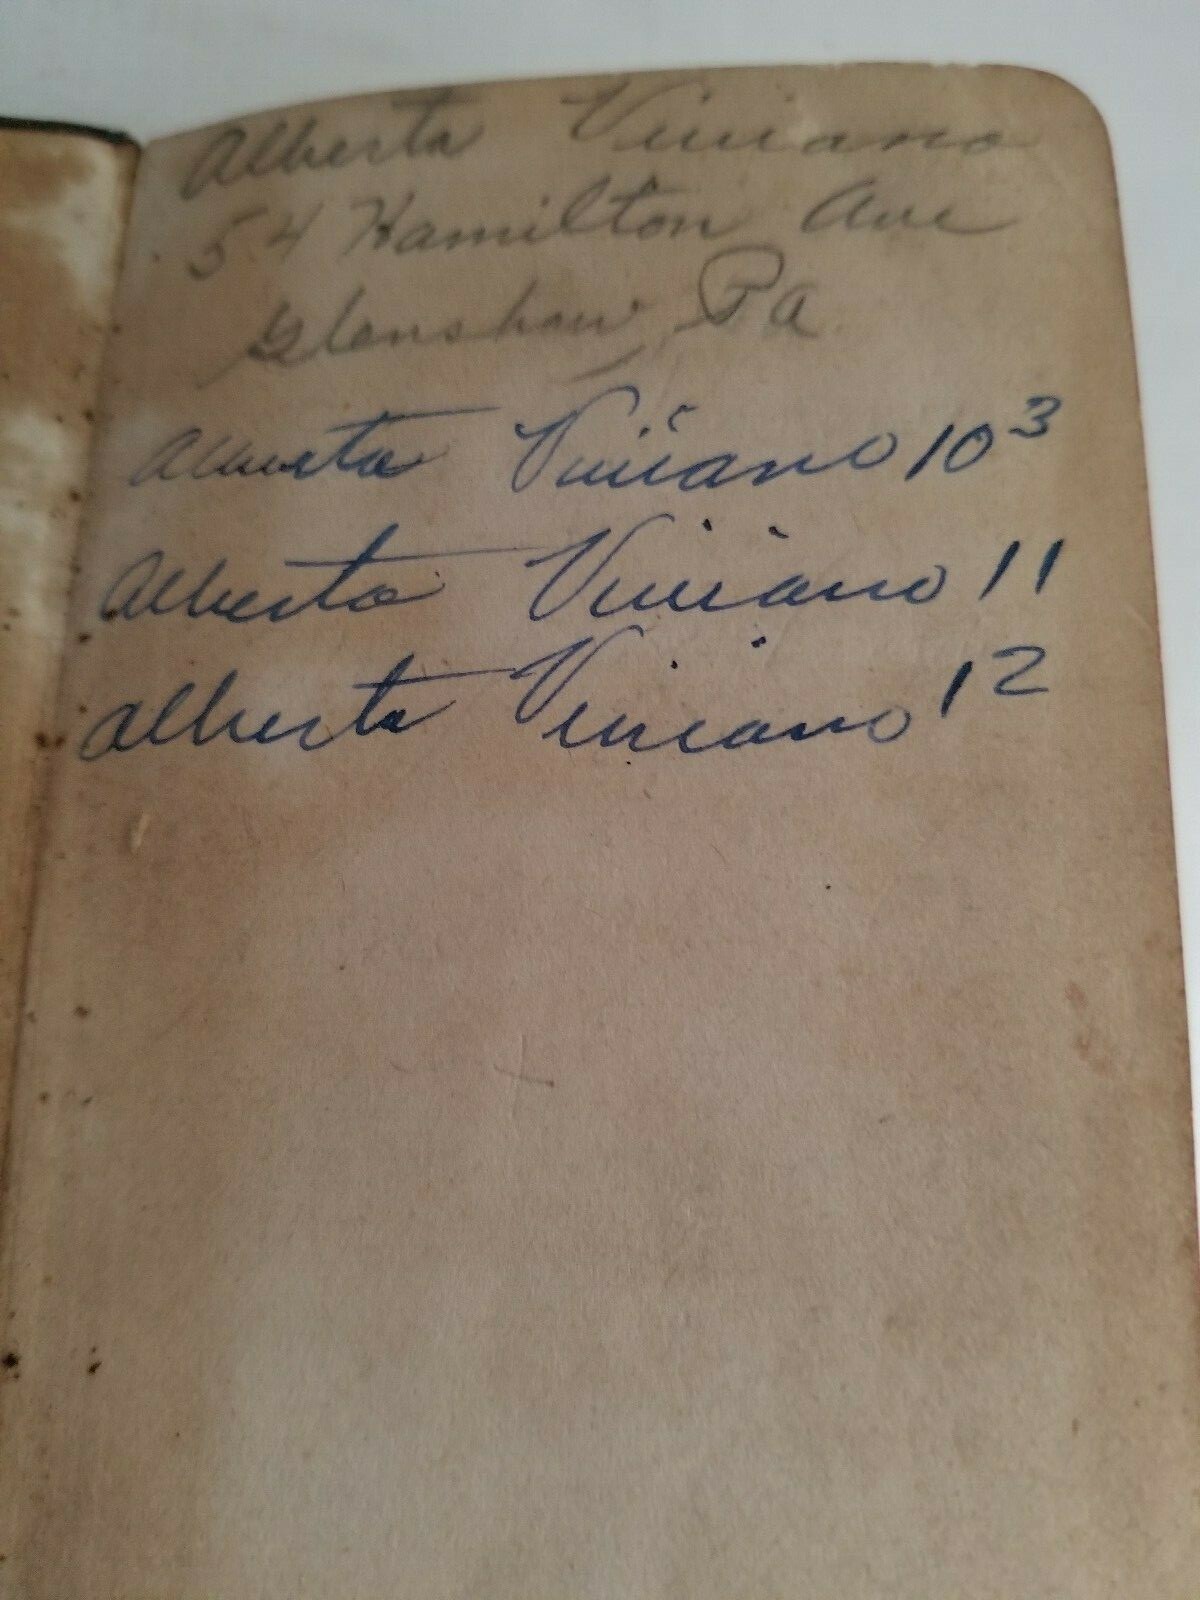 Alberta Viviano
54 Hamilton Ave
Glenshaw, Pa
Alberta Viviano 10³
Alberta Viviano 11
Alberta Viviano 12